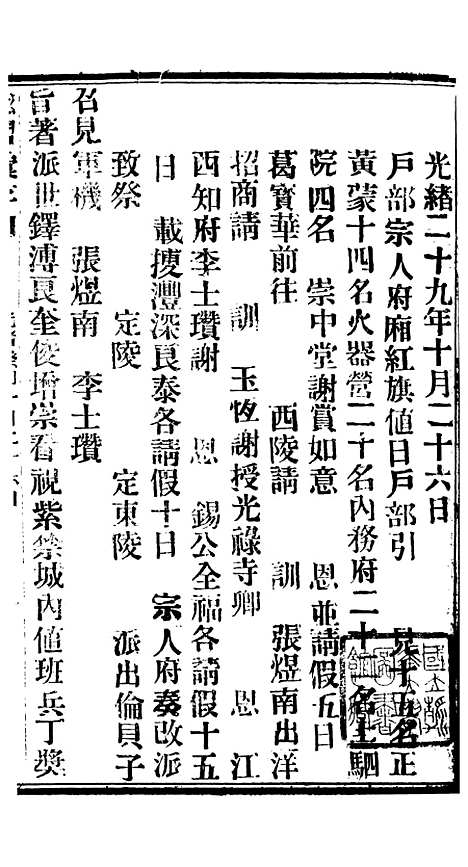 光緒二十九年十月二十六日
戶部宗人府廂紅旗値日戶部引　見十五名正
黃蒙十四名火器營二十名內務府二十一名上駟
院四名　崇中堂謝賞如意　恩並請假五日
葛寶華前往　西陵請　訓　張煜南出洋
招商請　訓　玉恆謝授光祿寺卿　恩　江
西知府李士瓚謝　恩　錫公全福各請假十五
日　載搜灃深良泰各請假十日　宗人府奏改派
致祭　定陵　定東陵　派出倫貝子
召見軍機　張煜南　李士瓚
旨著派世鐸溥良奎俊增崇看視紫禁城內値班兵丁獎